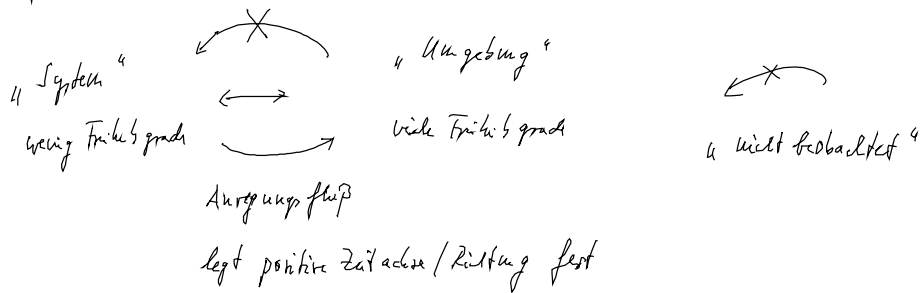 „System“
„Umgebung“
wenig Freiheitsgrade
viele Freiheitsgrade
„nicht beobachtet“
Anregungsfluß
legt positive Zeitachse/Richtung fest